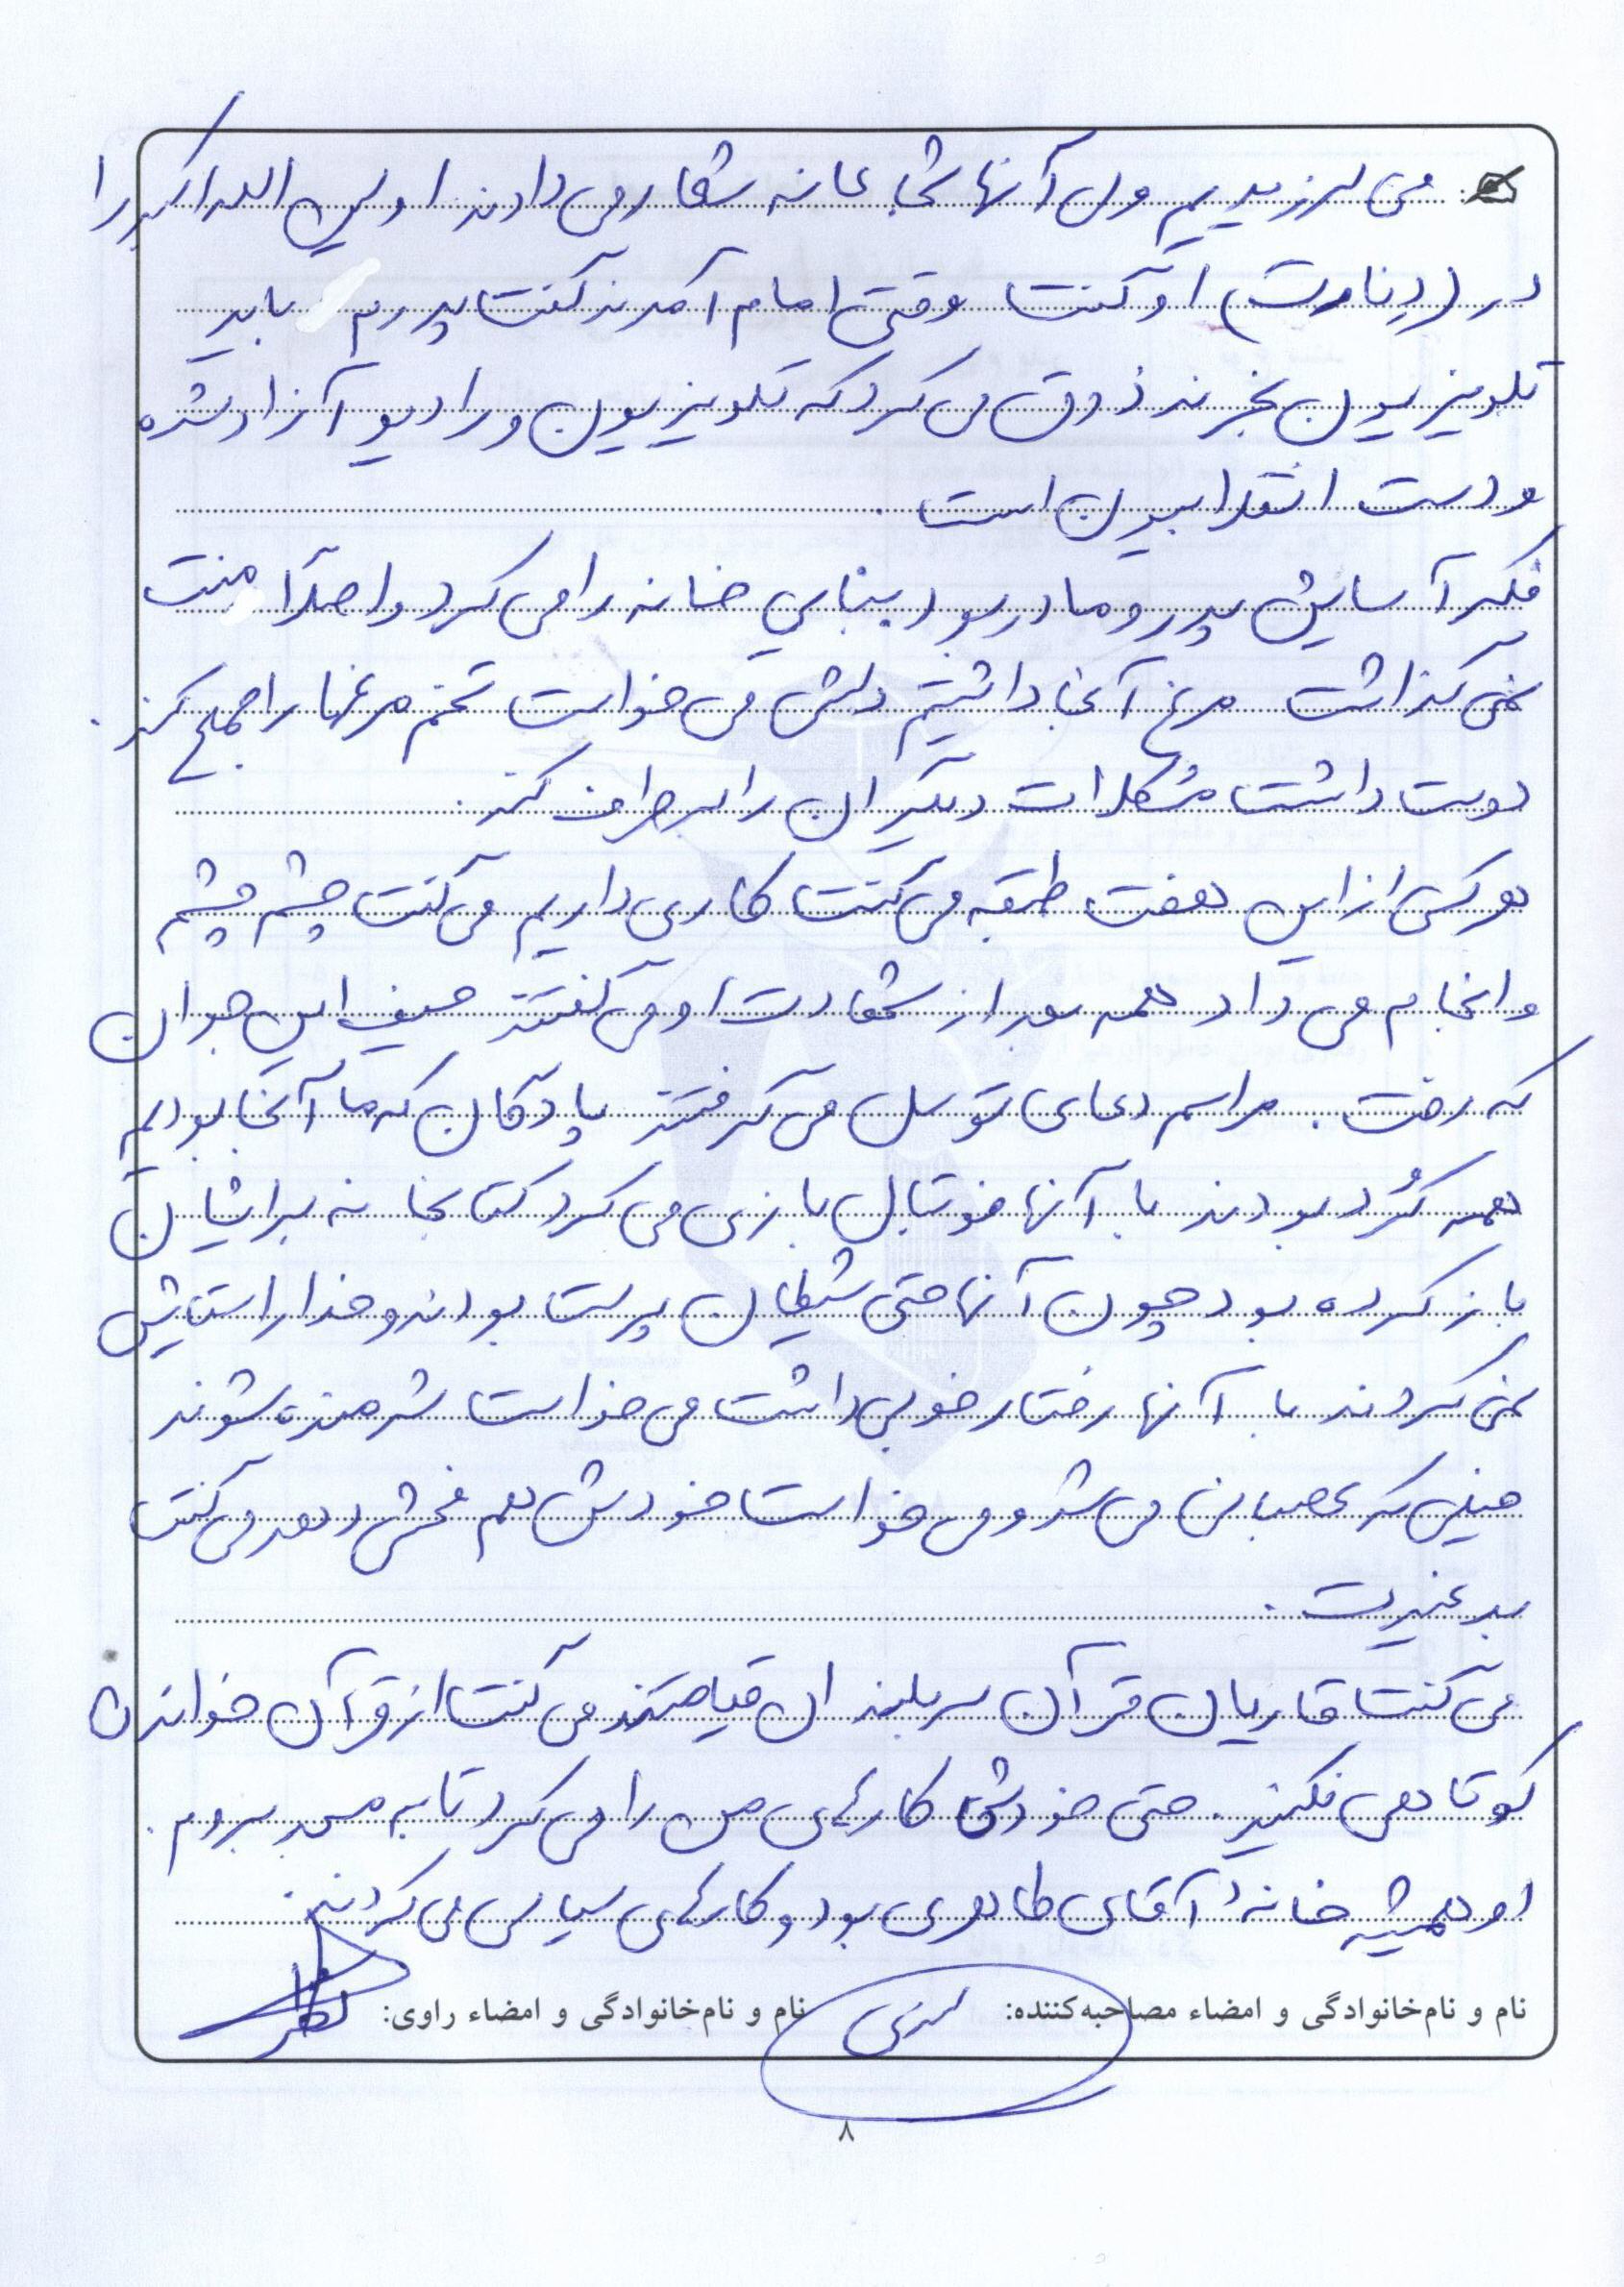 می لرزیدیم ولی آنها شجاعانه شعار می دادند اولین الله اکبر را
در (دینارت) او گفت وقتی امام آمدند گفت پدرم باید
تلویزیون بخرند ذوق می کرد که تلویزیون و رادیو آزاد شده
و دست انقلابیون است .
فکر آسایش پدر و مادر بود بنایی خانه را می کرد و اصلاً منت
نمی گذاشت مرغ آنجا داشتیم دلش می خواست تخم مرغها را جمع کند .
دوست داشت مشکلات دیگران را برطرف کند .
هر کسی از این هفت طبقه می گفت کاری داریم می گفت چشم چشم
و انجام می داد همه بعد از شهادت او می گفتند حیف این جوان
که رفت . مراسم دعای توسل می گرفتند پادگان که ما آنجا بودیم
همه کُرد بودند با آنها فوتبال بازی می کرد کتابخانه برایشان
باز کرده بود چون آنها حتی شیطان پرست بودند و خدا را ستایش
نمی کردند با آنها رفتار خوبی داشت می خواست شرمنده شوند
خیلی که عصبانی می شد و می خواست خودش هم فحش دهد می گفت
بد غیرت .
می گفت قاریان قرآن سربلندان قیامتند می گفت از قرآن خواندن
کوتاهی نکنید . حتی خودش کارهای من را می کرد تا به مسجد بروم .
او همیشه خانهٔ آقای طاهری بود و کارهای سیاسی می کردند .
نام و نام‌خانوادگی و امضاء مصاحبه‌کننده: نام و نام‌خانوادگی و امضاء راوی:
۸